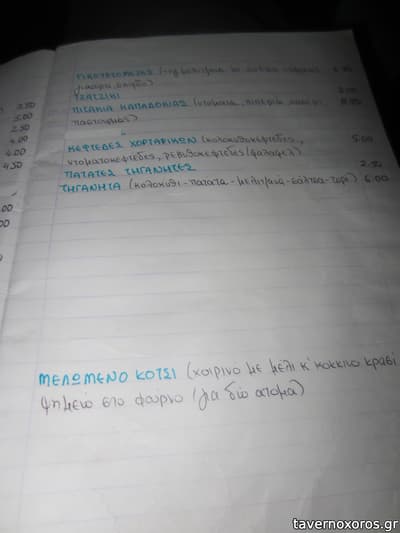 3.50
5.00
2.50
4.00
4.00
4.50
.00
00
ΤΖΑΤΖΙΚΙ
ΠΙΤΑΚΙΑ ΚΑΠΑΔΟΚΙΑΣ (ντομάτα, πιπεριά,
παστουρμάς)
ΚΕΦΤΕΔΕΣ ΧΟΡΤΑΡΙΚΩΝ (κολοκυθοκεφτέδες, 5.00
ντοματοκεφτέδες, ρεβυθοκεφτέδες (φαλαφελ)
ΠΑΤΑΤΕΣ ΤΗΓΑΝΗΤΕΣ 2.50
ΤΗΓΑΝΗΤΑ (κολοκύθι-πατάτα-μελιτζάνα- -τυρί) 6.00
ΜΕΛΩΜΕΝΟ ΚΟΤΣΙ (χοιρινό με μέλι κ' κόκκινο κρασί
ψημένο στο φούρνο (για δύο άτομα)
tavernoxoros.gr